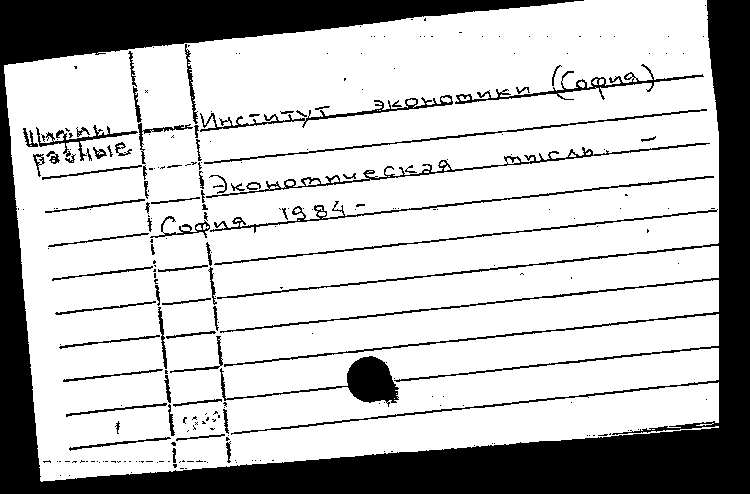 Институт экономики (София)
Шифры
разные
Экономическая мысль. –
София, 1984 –
1